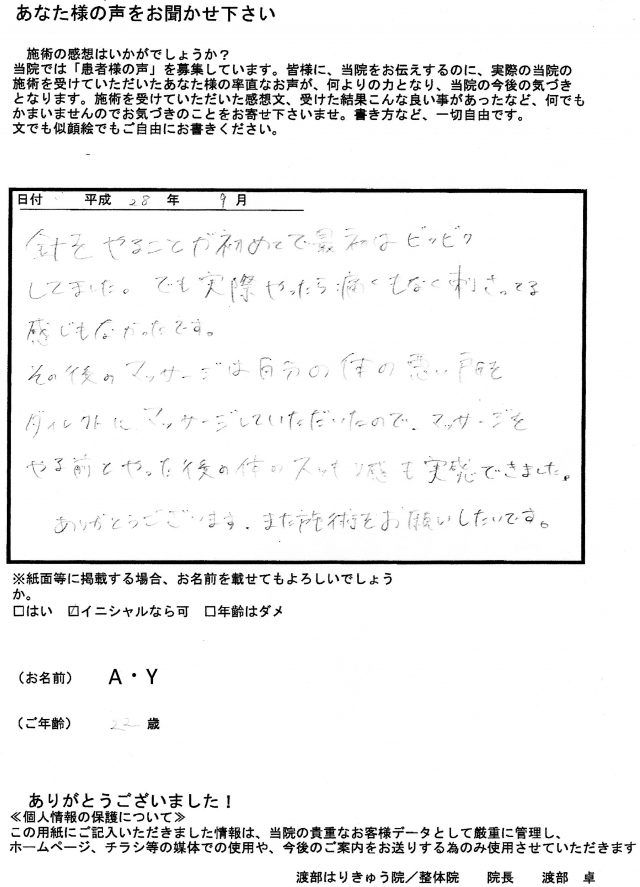 あなた様の声をお聞かせ下さい
施術の感想はいかがでしょうか？
当院では「患者様の声」を募集しています。皆様に、当院をお伝えするのに、実際の当院の
施術を受けていただいたあなた様の率直なお声が、何よりの力となり、当院の今後の気づき
となります。施術を受けていただいた感想文、受けた結果こんな良い事があったなど、何でも
かまいませんのでお気づきのことをお寄せ下さいませ。書き方など、一切自由です。
文でも似顔絵でもご自由にお書きください。
日付 平成 28 年 9 月
針をやることが初めてで最初はビクビク
してました。でも実際やったら痛くもなく刺さってる
感じもなかったです。
その後のマッサージは自分の体の悪い所を
ダイレクトにマッサージしていただいたので、マッサージを
やる前とやった後の体のスッキリ感も実感できました。
ありがとうございます。また施術をお願いしたいです。
※紙面等に掲載する場合、お名前を載せてもよろしいでしょう
か。
□はい ☑イニシャルなら可 □年齢はダメ
（お名前） A・Y
（ご年齢） 22 歳
ありがとうございました！
≪個人情報の保護について≫
この用紙にご記入いただきました情報は、当院の貴重なお客様データとして厳重に管理し、
ホームページ、チラシ等の媒体での使用や、今後のご案内をお送りする為のみ使用させていただきます
渡部はりきゅう院／整体院 院長 渡部 卓